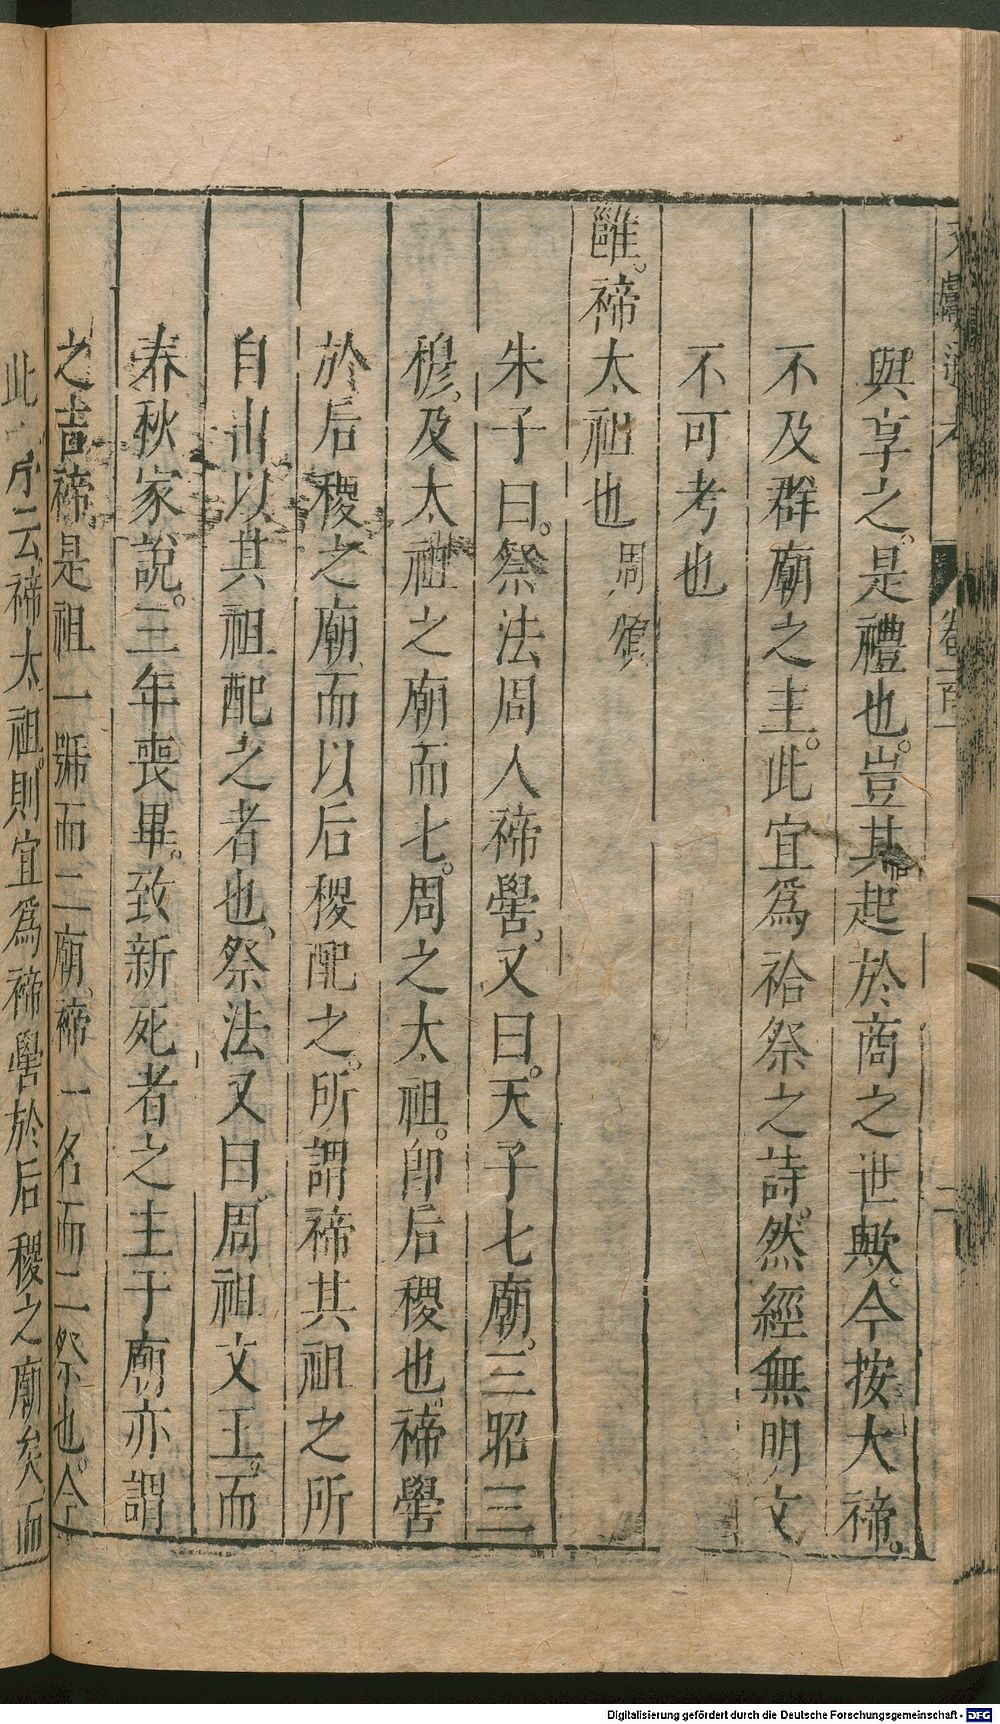 與享之是禮也。豈其起於商之世歟。今按大禘。
不及群廟之主。此宜爲祫祭之詩。然經無明文
不可考也
雝。禘太祖也 周頌
朱子曰。祭法周人禘嚳、又曰。天子七廟。三昭三
穆、及太祖之廟而七。周之太祖。卽后稷也。禘嚳
於后稷之廟、而以后稷配之。所謂禘其祖之所
自出以其祖配之者也、祭法又曰。周祖文王。而
春秋家說。三年喪畢。致新死者之主于廟亦謂
之吉禘。是祖一號而二廟、禘一名而二祭也。今
此序云禘太祖。則宜爲禘嚳於后稷之廟矣、而
卷一百
二
Digitalisierung gefördert durch die Deutsche Forschungsgemeinschaft - DFG